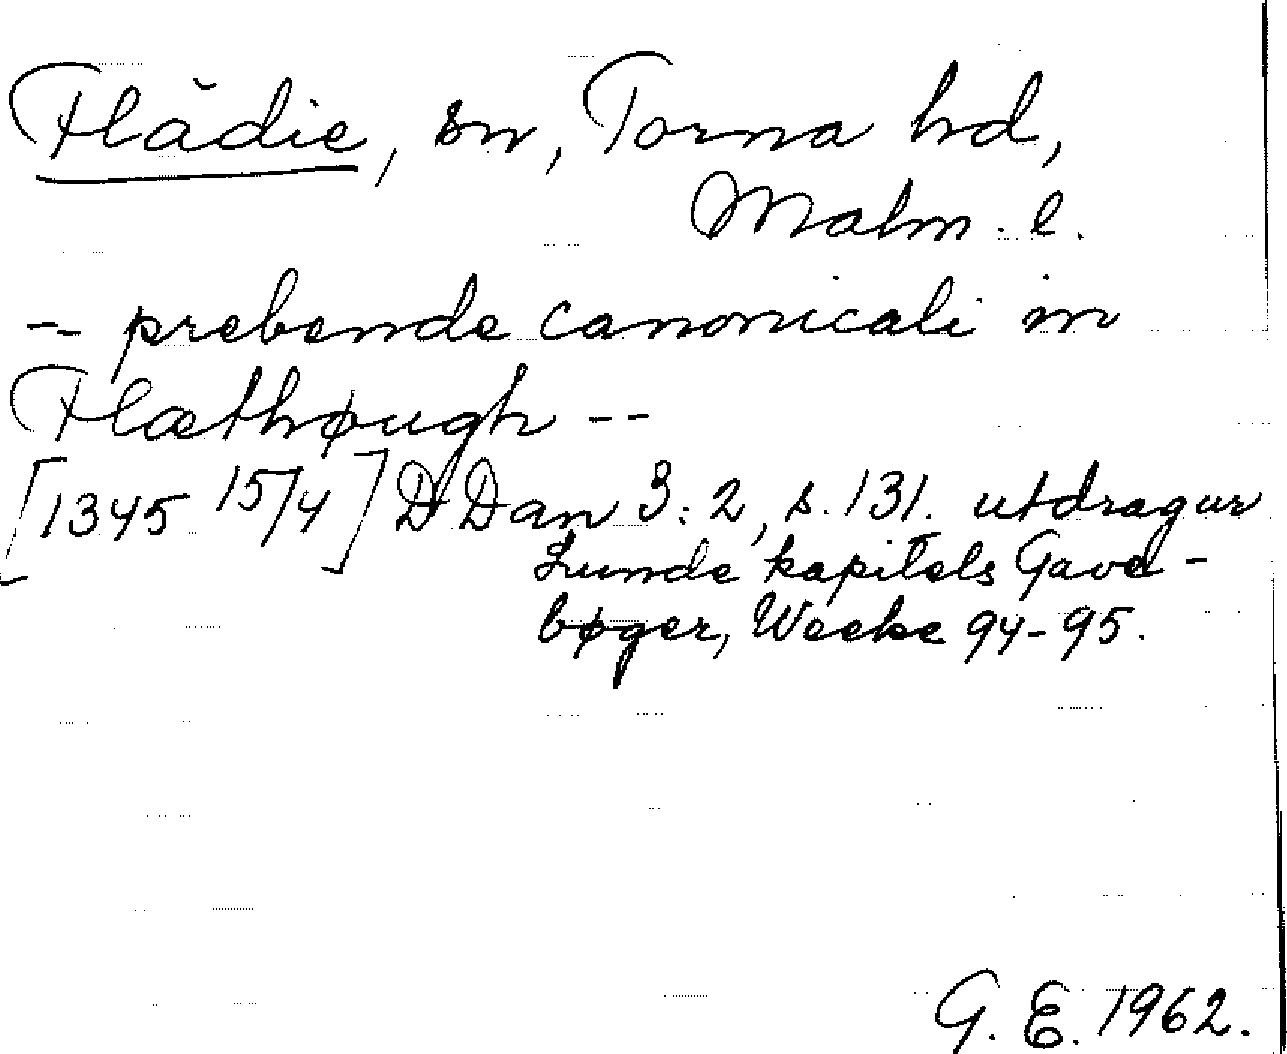 Flädie, sn, Torna hd,
Malm. l.
-- prebende canonicali in
Flæthøugh --
[1345 15/4] DDan 3:2, s. 131. utdrag ur
Lunde kapitels Gave-
bøger, Weeke 94-95.
G. E. 1962.